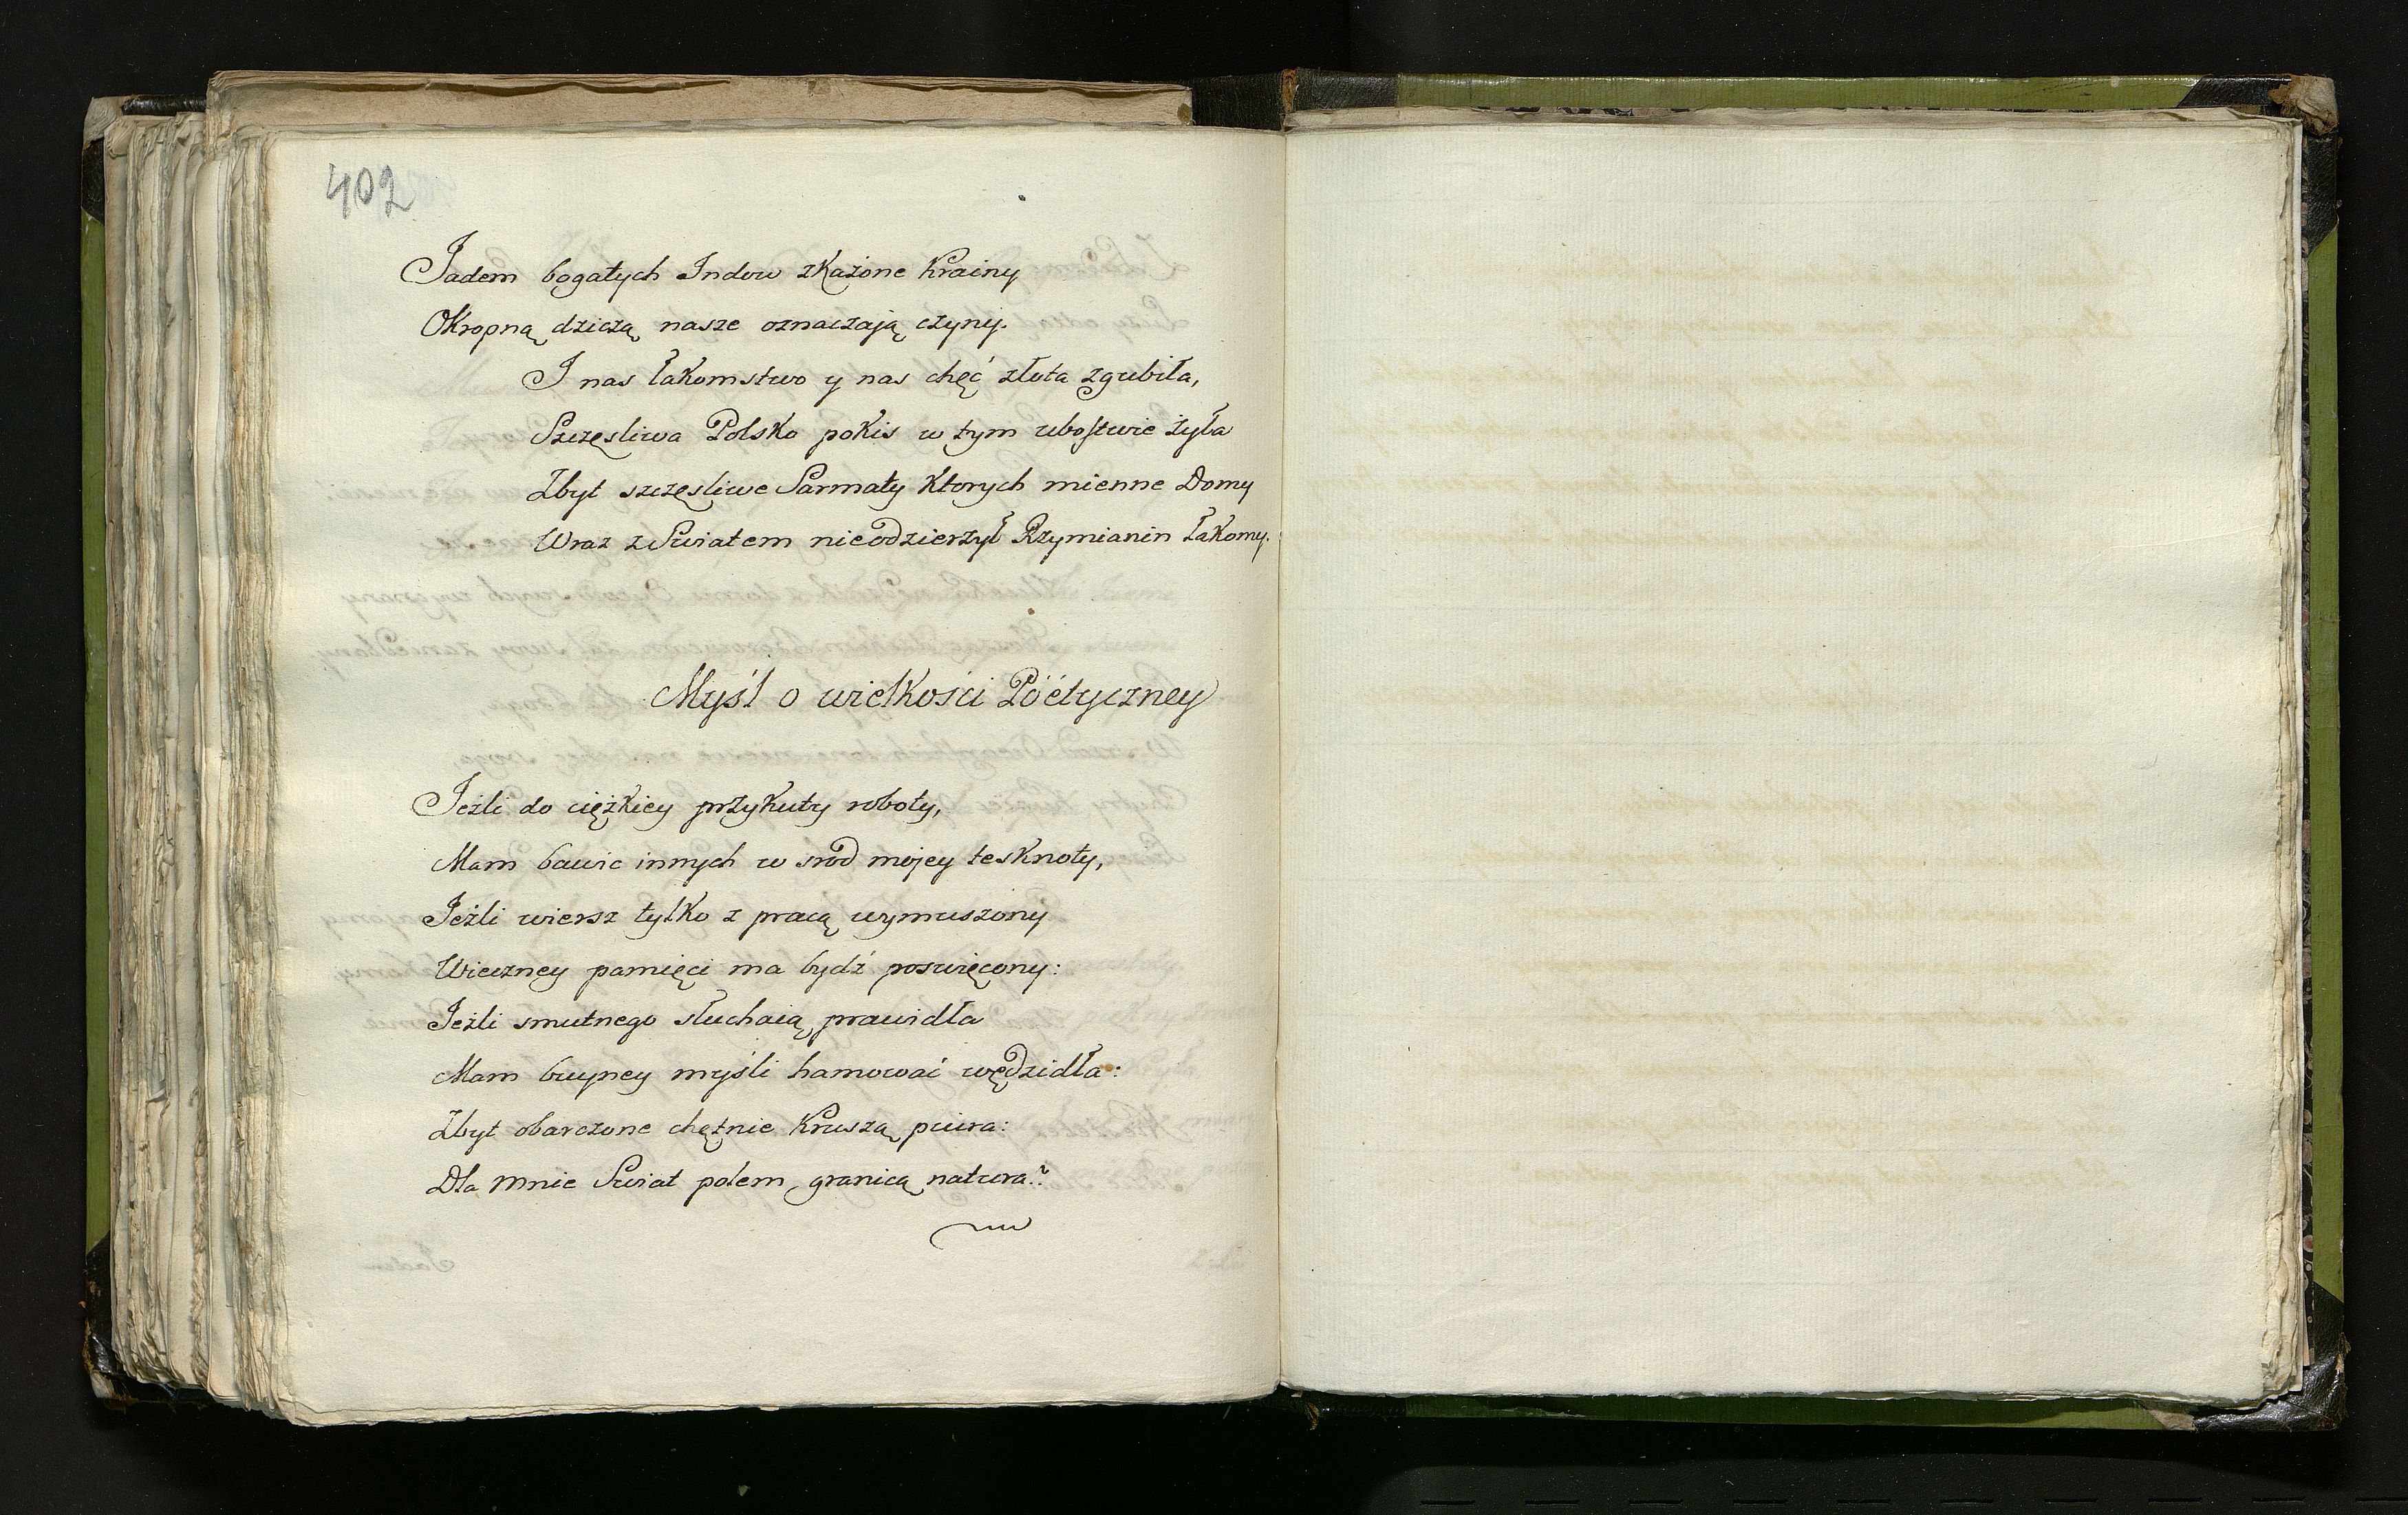 402
Jadem bogatych Indow zkażone Krainy
Okropną dziczą nasze oznaczają czyny.
I nas łakomstwo y nas chęć złota zgubiła,
Szczęsliwa Polsko pokis w tym ubostwie żyła
Zbyt szczęsliwe Sarmaty ktorych mienne Domy
Wraz z Swiatem nieodzierżył Rzymianin łakomy.
Myśl o wielkości Póétyczney
Jeżli do ciężkiey przykuty roboty,
Mam bawic innych w srod mojey tesknoty,
Jeżli wiersz tylko z pracą wymuszony
Wieczney pamięci ma bydź poswięcony:
Jeżli smutnego słuchaią prawidła
Mam buyney myśli hamować wędzidła:
Zbyt obarczone chętnie kruszą piura:
Dla mnie Swiat polem, granicą natura?